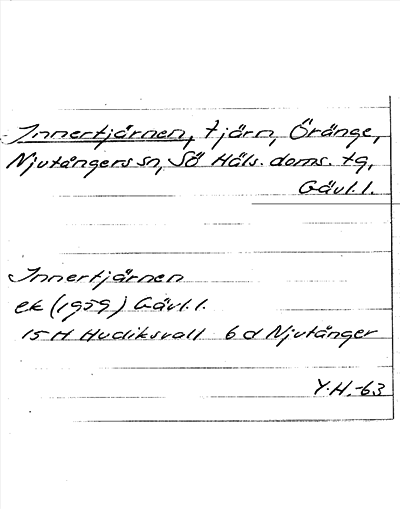 Innertjärnen, tjärn, Öränge,
Njutångers sn, Sö Häls. doms. tg,
Gävl. l.
Innertjärnen
ek (1959) Gävl. l.
15 H Hudiksvall 6 d Njutånger
Y.H.-63